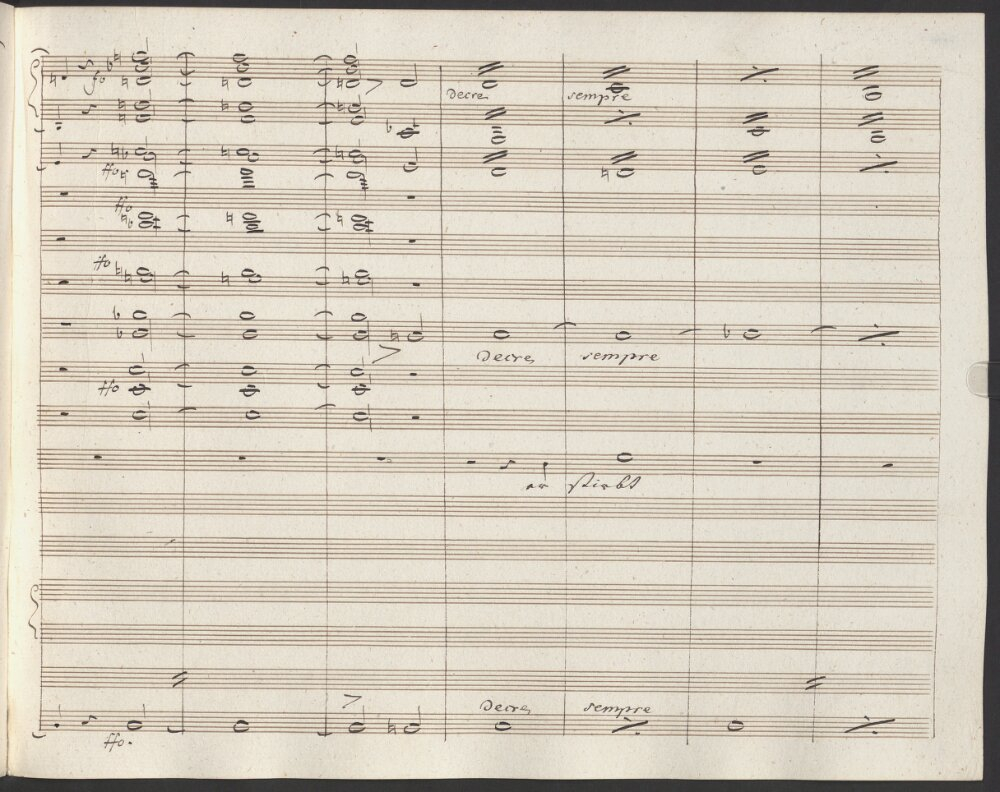 ffo
Decre sempre
ffo
ffo
ffo
Decre, sempre
ffo
er stirbt
Decre, sempre
ffo.